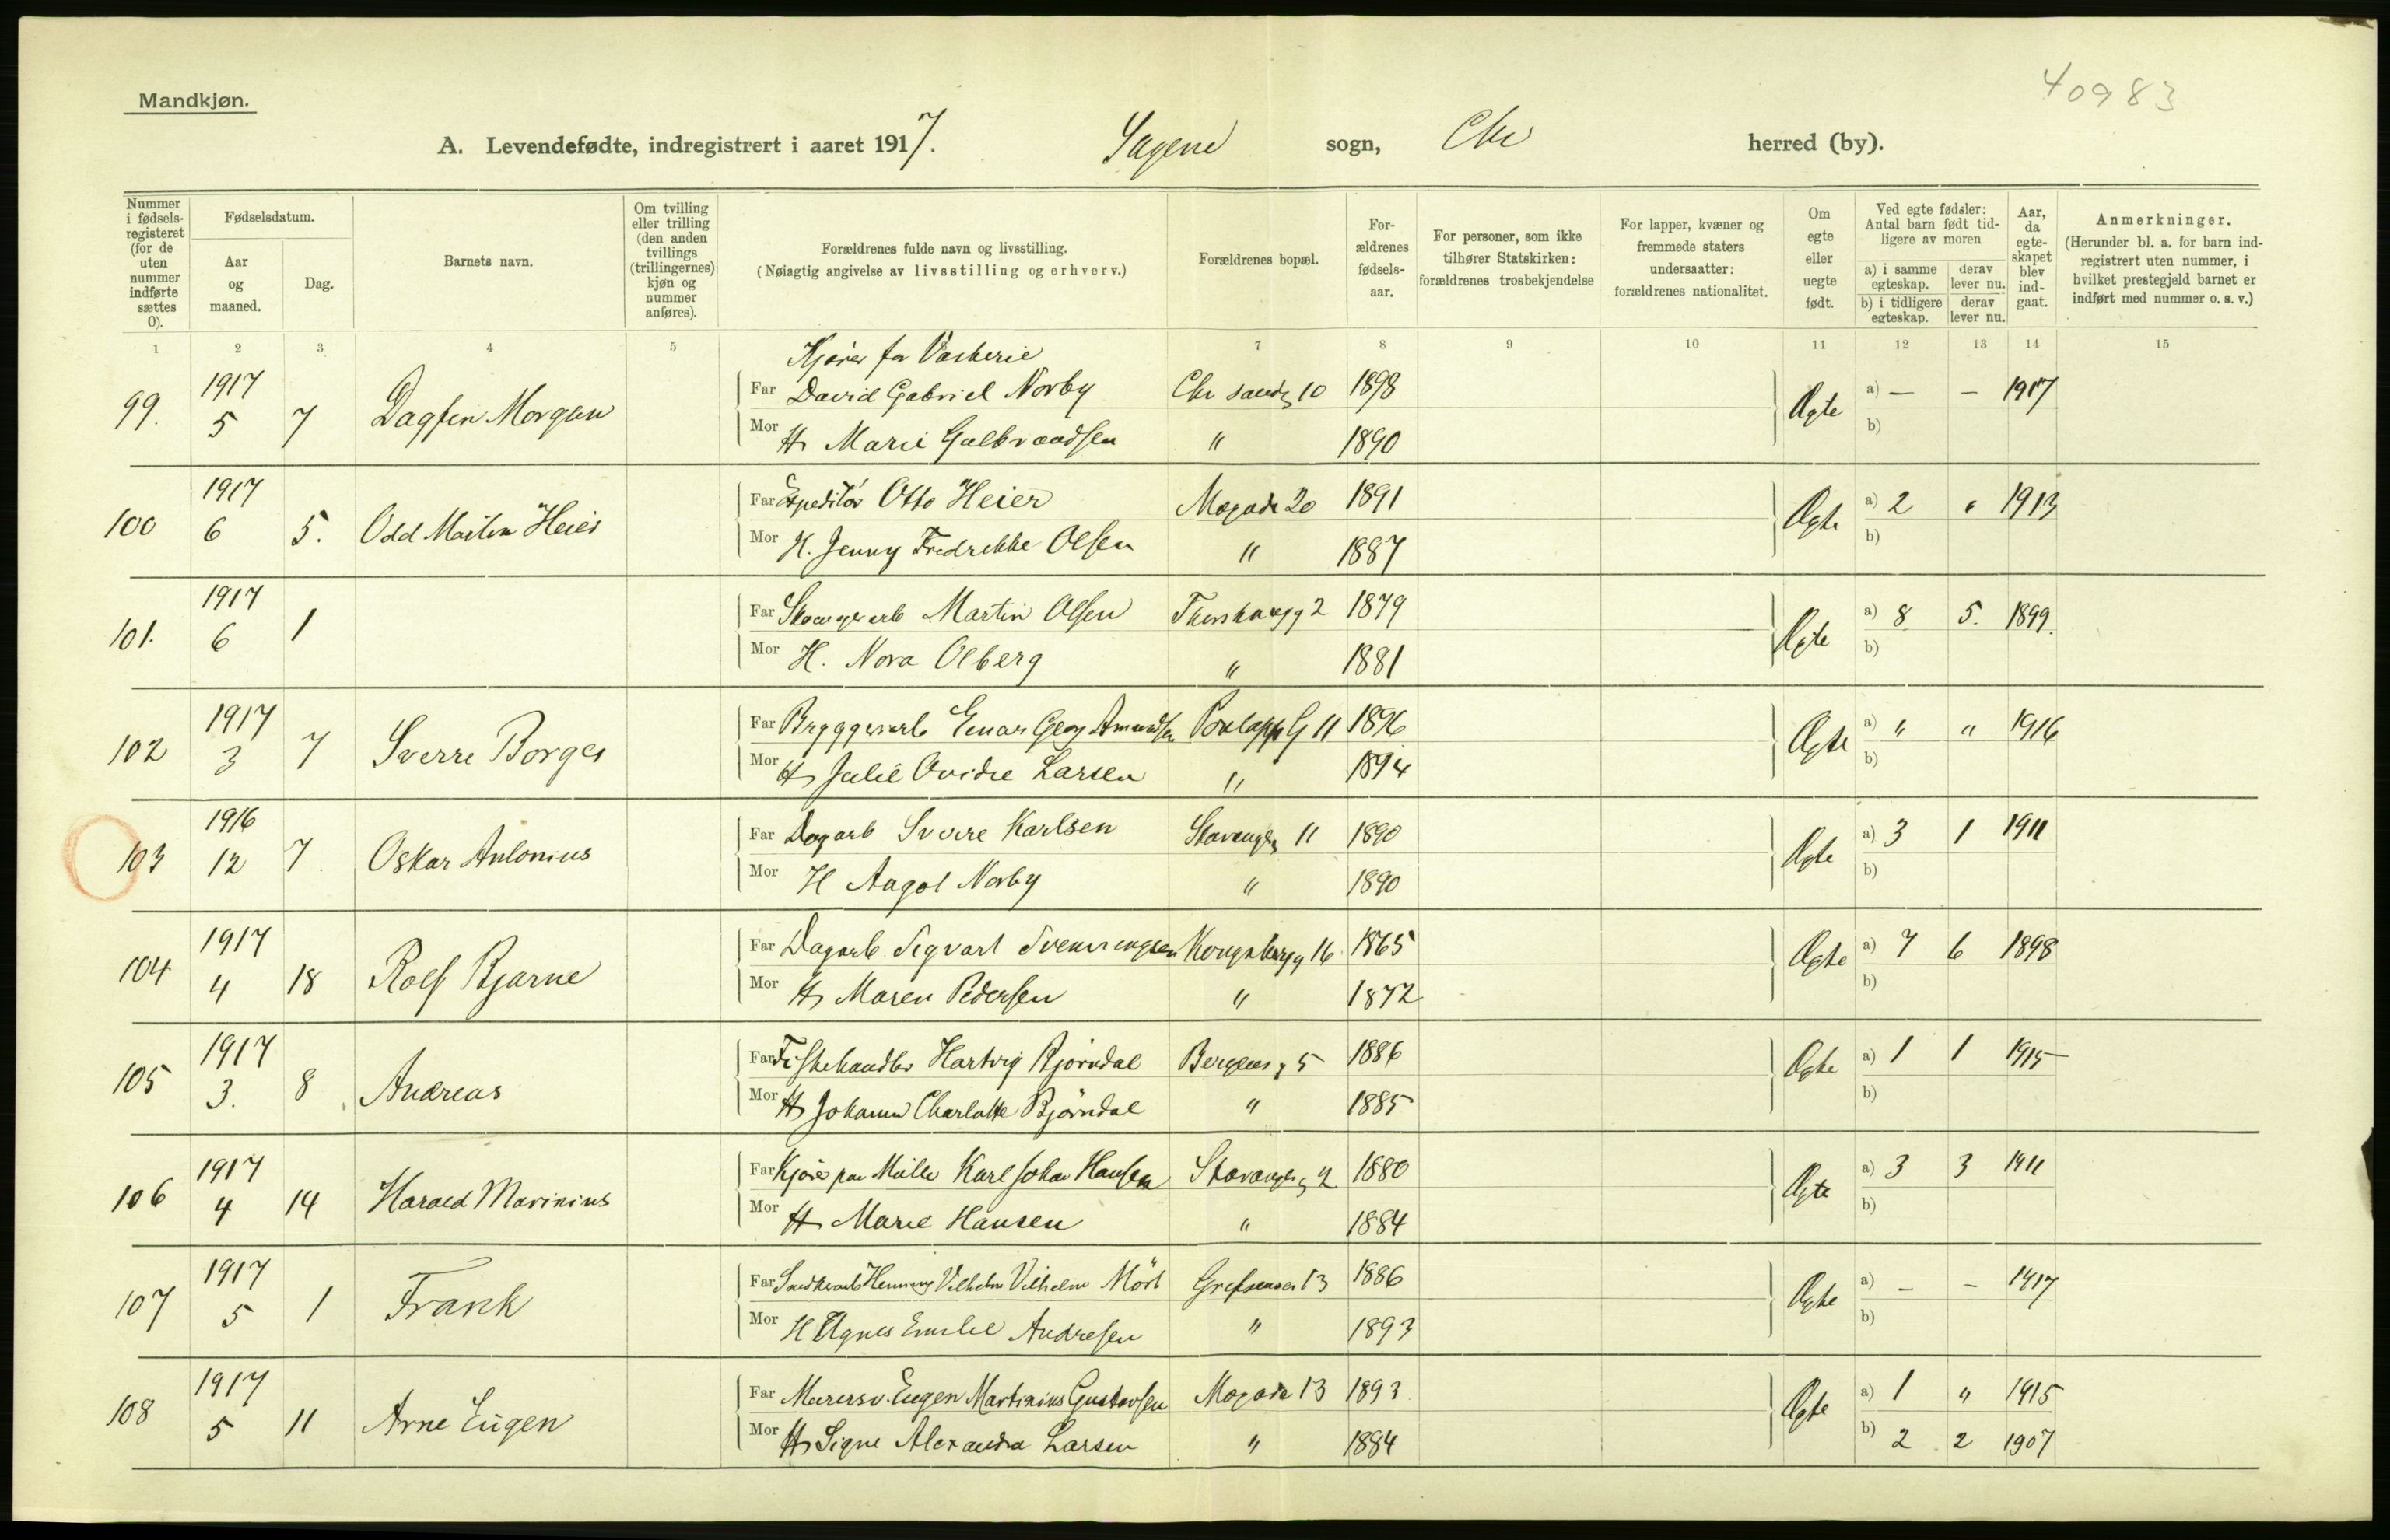 40983
Mandkjøn.
A. Levendefødte, indregistrert i aaret 1917. Sagene sogn, Chr herred (by).
Nummer i fødsels-registeret (for de uten nummer indførte sættes 0).
Fødselsdatum.
Aar og maaned.
Dag.
Barnets navn.
Om tvilling eller trilling (den anden tvillings (trillingernes) kjøn og nummer anføres).
Forældrenes fulde navn og livsstilling.
(Nøiagtig angivelse av livsstilling og erhverv.)
Forældrenes bopæl.
For-ældrenes fødsels-aar.
For personer, som ikke tilhører Statskirken: forældrenes trosbekjendelse
For lapper, kvæner og fremmede staters undersaatter: forældrenes nationalitet.
Om egte eller uegte født.
Ved egte fødsler: Antal barn født tid-ligere av moren
a) i samme egteskap. derav lever nu.
b) i tidligere egteskap. derav lever nu.
Aar, da egte-skapet blev ind-gaat.
Anmerkninger.
(Herunder bl. a. for barn ind-registrert uten nummer, i hvilket prestegjeld barnet er indført med nummer o. s. v.)
1 2 3 4 5 7 8 9 10 11 12 13 14 15
Kjører for Vaskerie
99. 1917 5 7 Dagfin Morgan Far David Gabriel Norby Chr sandg 10 1898 Ægte a) — — 1917
Mor H Marie Gulbrandsen " 1890 b)
100 1917 6 5. Odd Martin Heier Far Expeditør Otto Heier 20 1891 Ægte a) 2 " 1913
Mor H. Jenny Fredrikke Olsen " 1887 b)
101. 1917 6 1 Far Martin Olsen 2 1879 Ægte a) 8 5. 1899.
Mor H. Nora Olberg " 1881 b)
102 1917 3 7 Sverre Borges Far Bryggeriarb Einar Georg Amundsen 11 1896 Ægte a) " " 1916
Mor H Julie Ovidie Larsen " 1894 b)
103 1916 12 7 Oskar Antonius Far Dagarb Sverre Karlsen Stavangerg 11 1890 Ægte a) 3 1 1911
Mor H Aagot Norby " 1890 b)
104 1917 4 18 Rolf Bjarne Far Dagarb Sigvart Svenningsen Kongsbergg 16 1865 Ægte a) 7 6 1898
Mor H Maren Pedersen " 1872 b)
105 1917 3. 8 Andreas Far Fiskehandler Hartvig Bjørndal Bergensg 5 1886 Ægte a) 1 1 1915
Mor H Johanne Charlotte Bjørndal " 1885 b)
106 1917 4 14 Harald Marinius Far Kjører paa Mølle Karl Johan Hansen Stavangerg 2 1880 Ægte a) 3 3 1911
Mor H Marie Hansen " 1884 b)
107 1917 5 1 Frank Far Snedkerarb Henning Vilhelm Vilhelm Mört Grefsenvei 13 1886 Ægte a) – – 1917
Mor H Agnes Emilie Andresen " 1893 b)
108 1917 5 11 Arne Eugen Far Murersv. Eugen Martinius Gustavsen 13 1893 Ægte a) 1 " 1915
Mor H Signe Alexandra Larsen " 1884 b) 2 2 1907